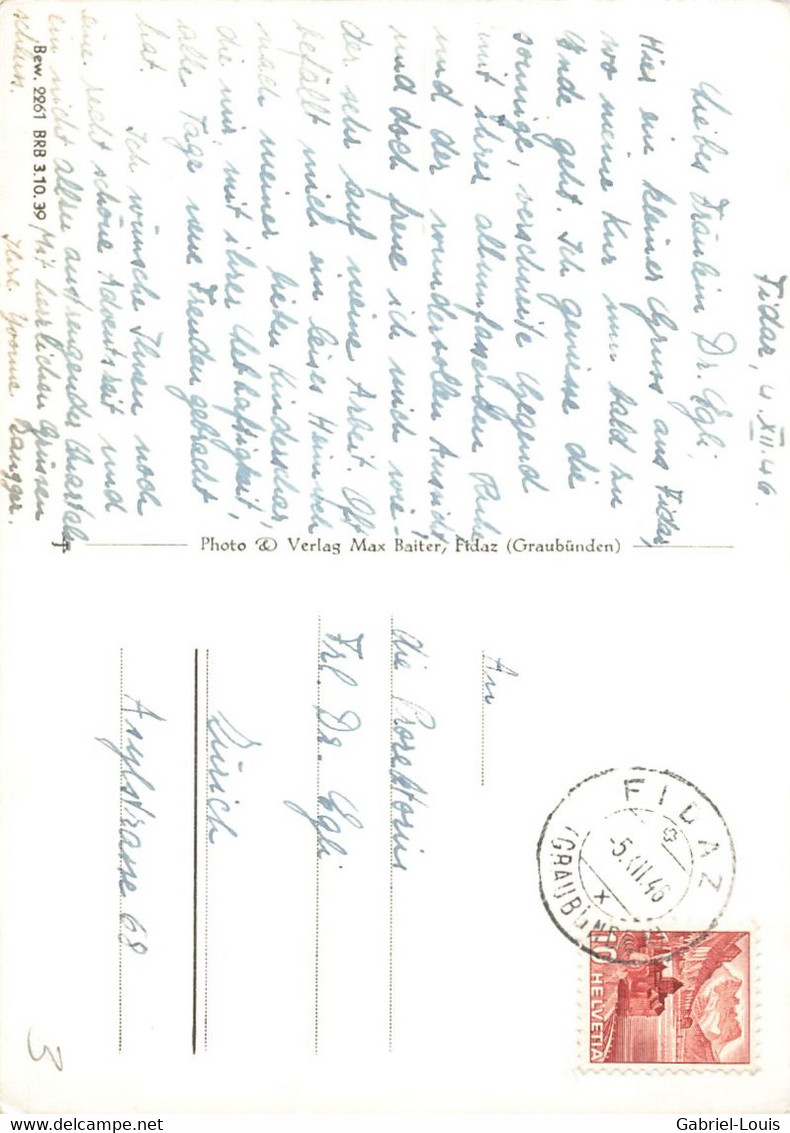 Fidaz, 4. XII. 46.
Liebes Fräulein Dr. Egli,
Hier ein kleiner Gruss aus Fidaz,
wo meine Kur nun bald zu
Ende geht. Ich geniesse die
sonnige, verschneite Gegend
mit ihrer allumfassenden Ruhe
und der wundervollen Aussicht
und doch freue ich mich wie-
der sehr auf meine Arbeit. Oft
befällt mich ein leises Heimweh
nach meiner lieben Kinderschar,
die mir mit ihrer Lebhaftigkeit,
alle Tage neue Freuden gebracht
hat.
Ich wünsche Ihnen noch
eine recht schöne Adventszeit und
ein nicht allzu anstrengendes Quartal-
schluss.
Mit herzlichen Grüssen
Ihre Yvonne Bangger.
Bew. 2261 BRB 3.10.39
Photo & Verlag Max Baiter, Fidaz (Graubünden)
An
die Prorektorin
Frl. Dr. Egli
Zürich
Asylstrasse 68
FIDAZ
-5.XII.46
(GRAUBÜNDEN)
10
HELVETIA
3
Gabriel-Louis